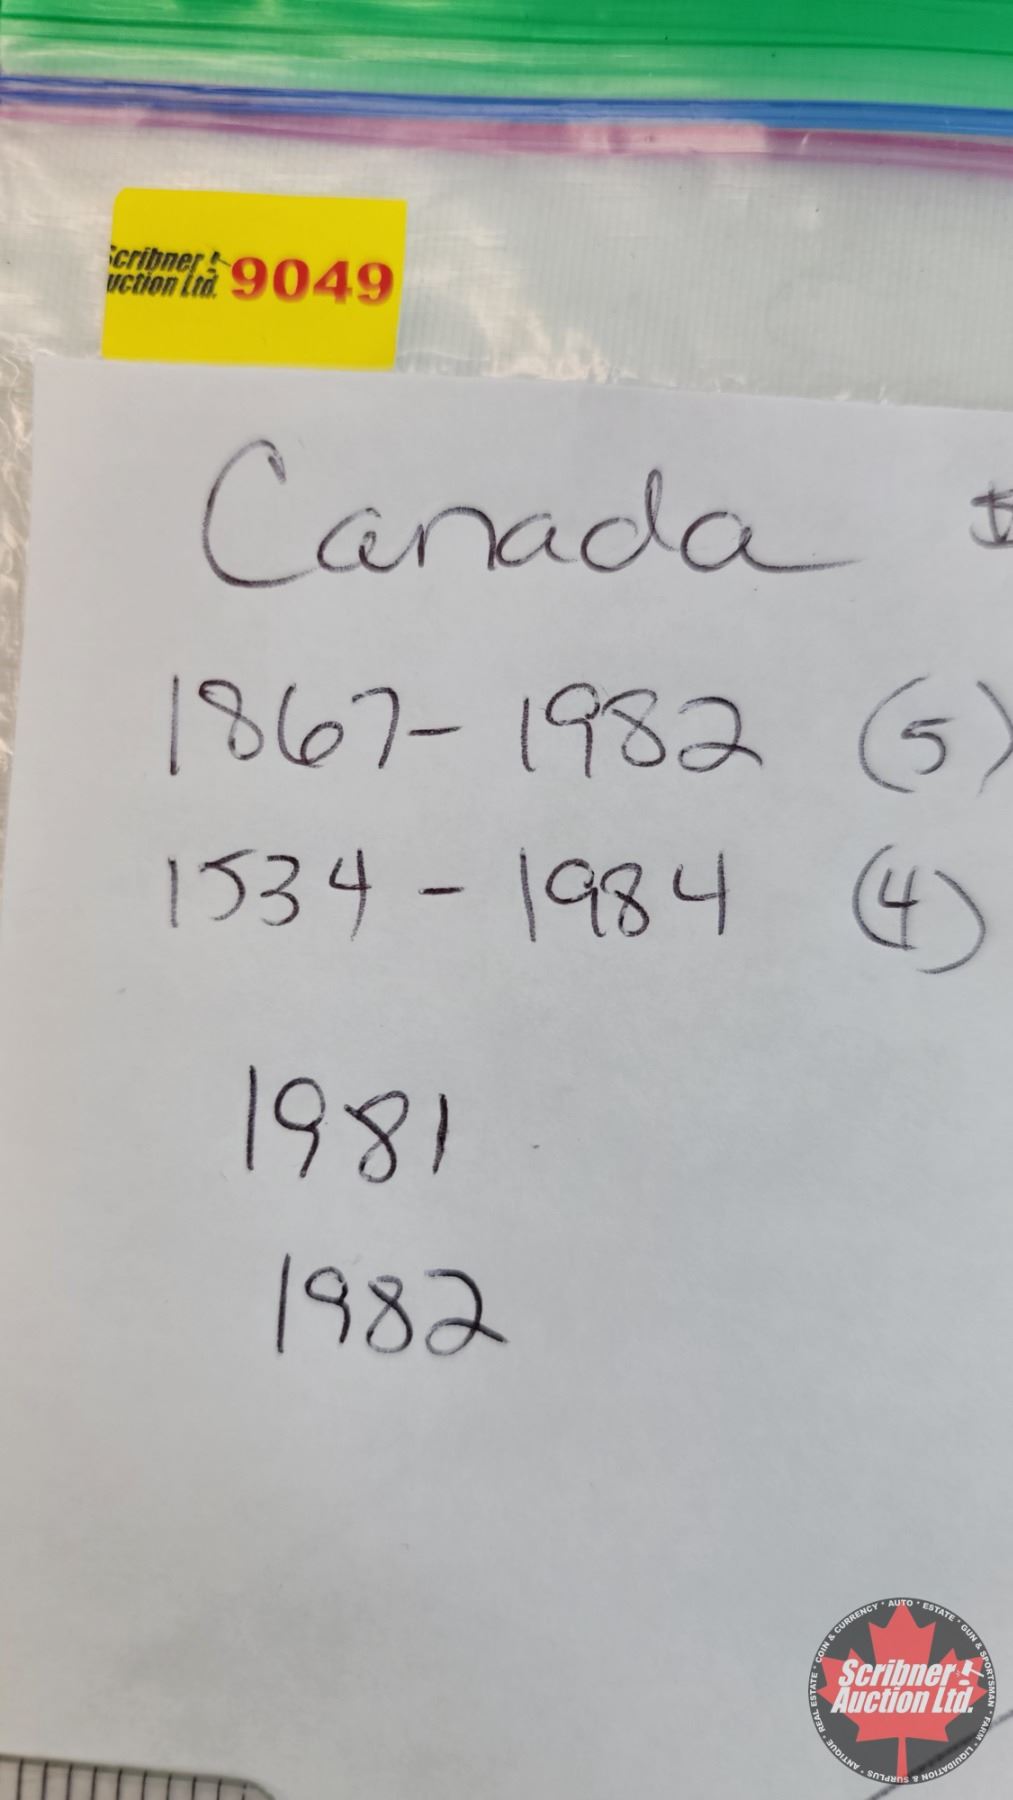 Scribner
Auction Ltd. 9049
Canada $
1867 - 1982 (5)
1534 - 1984 (4)
1981
1982
COIN & CURRENCY • AUTO • ESTATE • GUN & SPORTSMAN • FARM • LIQUIDATION & SURPLUS • ANTIQUE • REAL ESTATE •
Scribner
Auction Ltd.